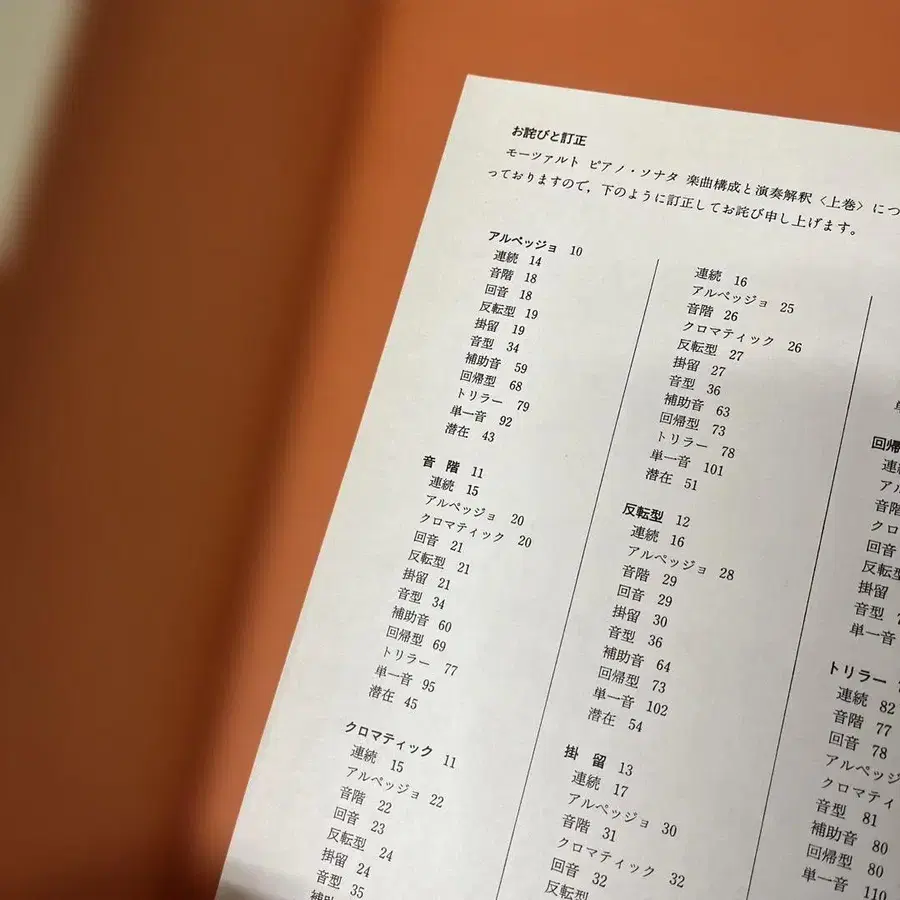 お詫びと訂正
モーツァルト ピアノ・ソナタ 楽曲構成と演奏解釈〈上巻〉につ
っておりますので，下のように訂正してお詫び申し上げます。
アルペッジョ 10
連続 14
音階 18
回音 18
反転型 19
掛留 19
音型 34
補助音 59
回帰型 68
トリラー 79
単一音 92
潜在 43
音階 11
連続 15
アルペッジョ 20
クロマティック 20
回音 21
反転型 21
掛留 21
音型 34
補助音 60
回帰型 69
トリラー 77
単一音 95
潜在 45
クロマティック 11
連続 15
アルペッジョ 22
音階 22
回音 23
反転型 24
掛留 24
音型 35
連続 16
アルペッジョ 25
音階 26
クロマティック 26
反転型 27
掛留 27
音型 36
補助音 63
回帰型 73
トリラー 78
単一音 101
潜在 51
反転型 12
連続 16
アルペッジョ 28
音階 29
回音 29
掛留 30
音型 36
補助音 64
回帰型 73
単一音 102
潜在 54
掛留 13
連続 17
アルペッジョ 30
音階 31
クロマティック 32
回音 32
反転型
単
回帰
連続
アル
音階
クロ
回音
反転
掛留
音型
単一音
トリラー
連続 82
音階 77
回音 78
アルペッジ
クロマティ
音型 81
補助音 80
回帰型 80
単一音 110